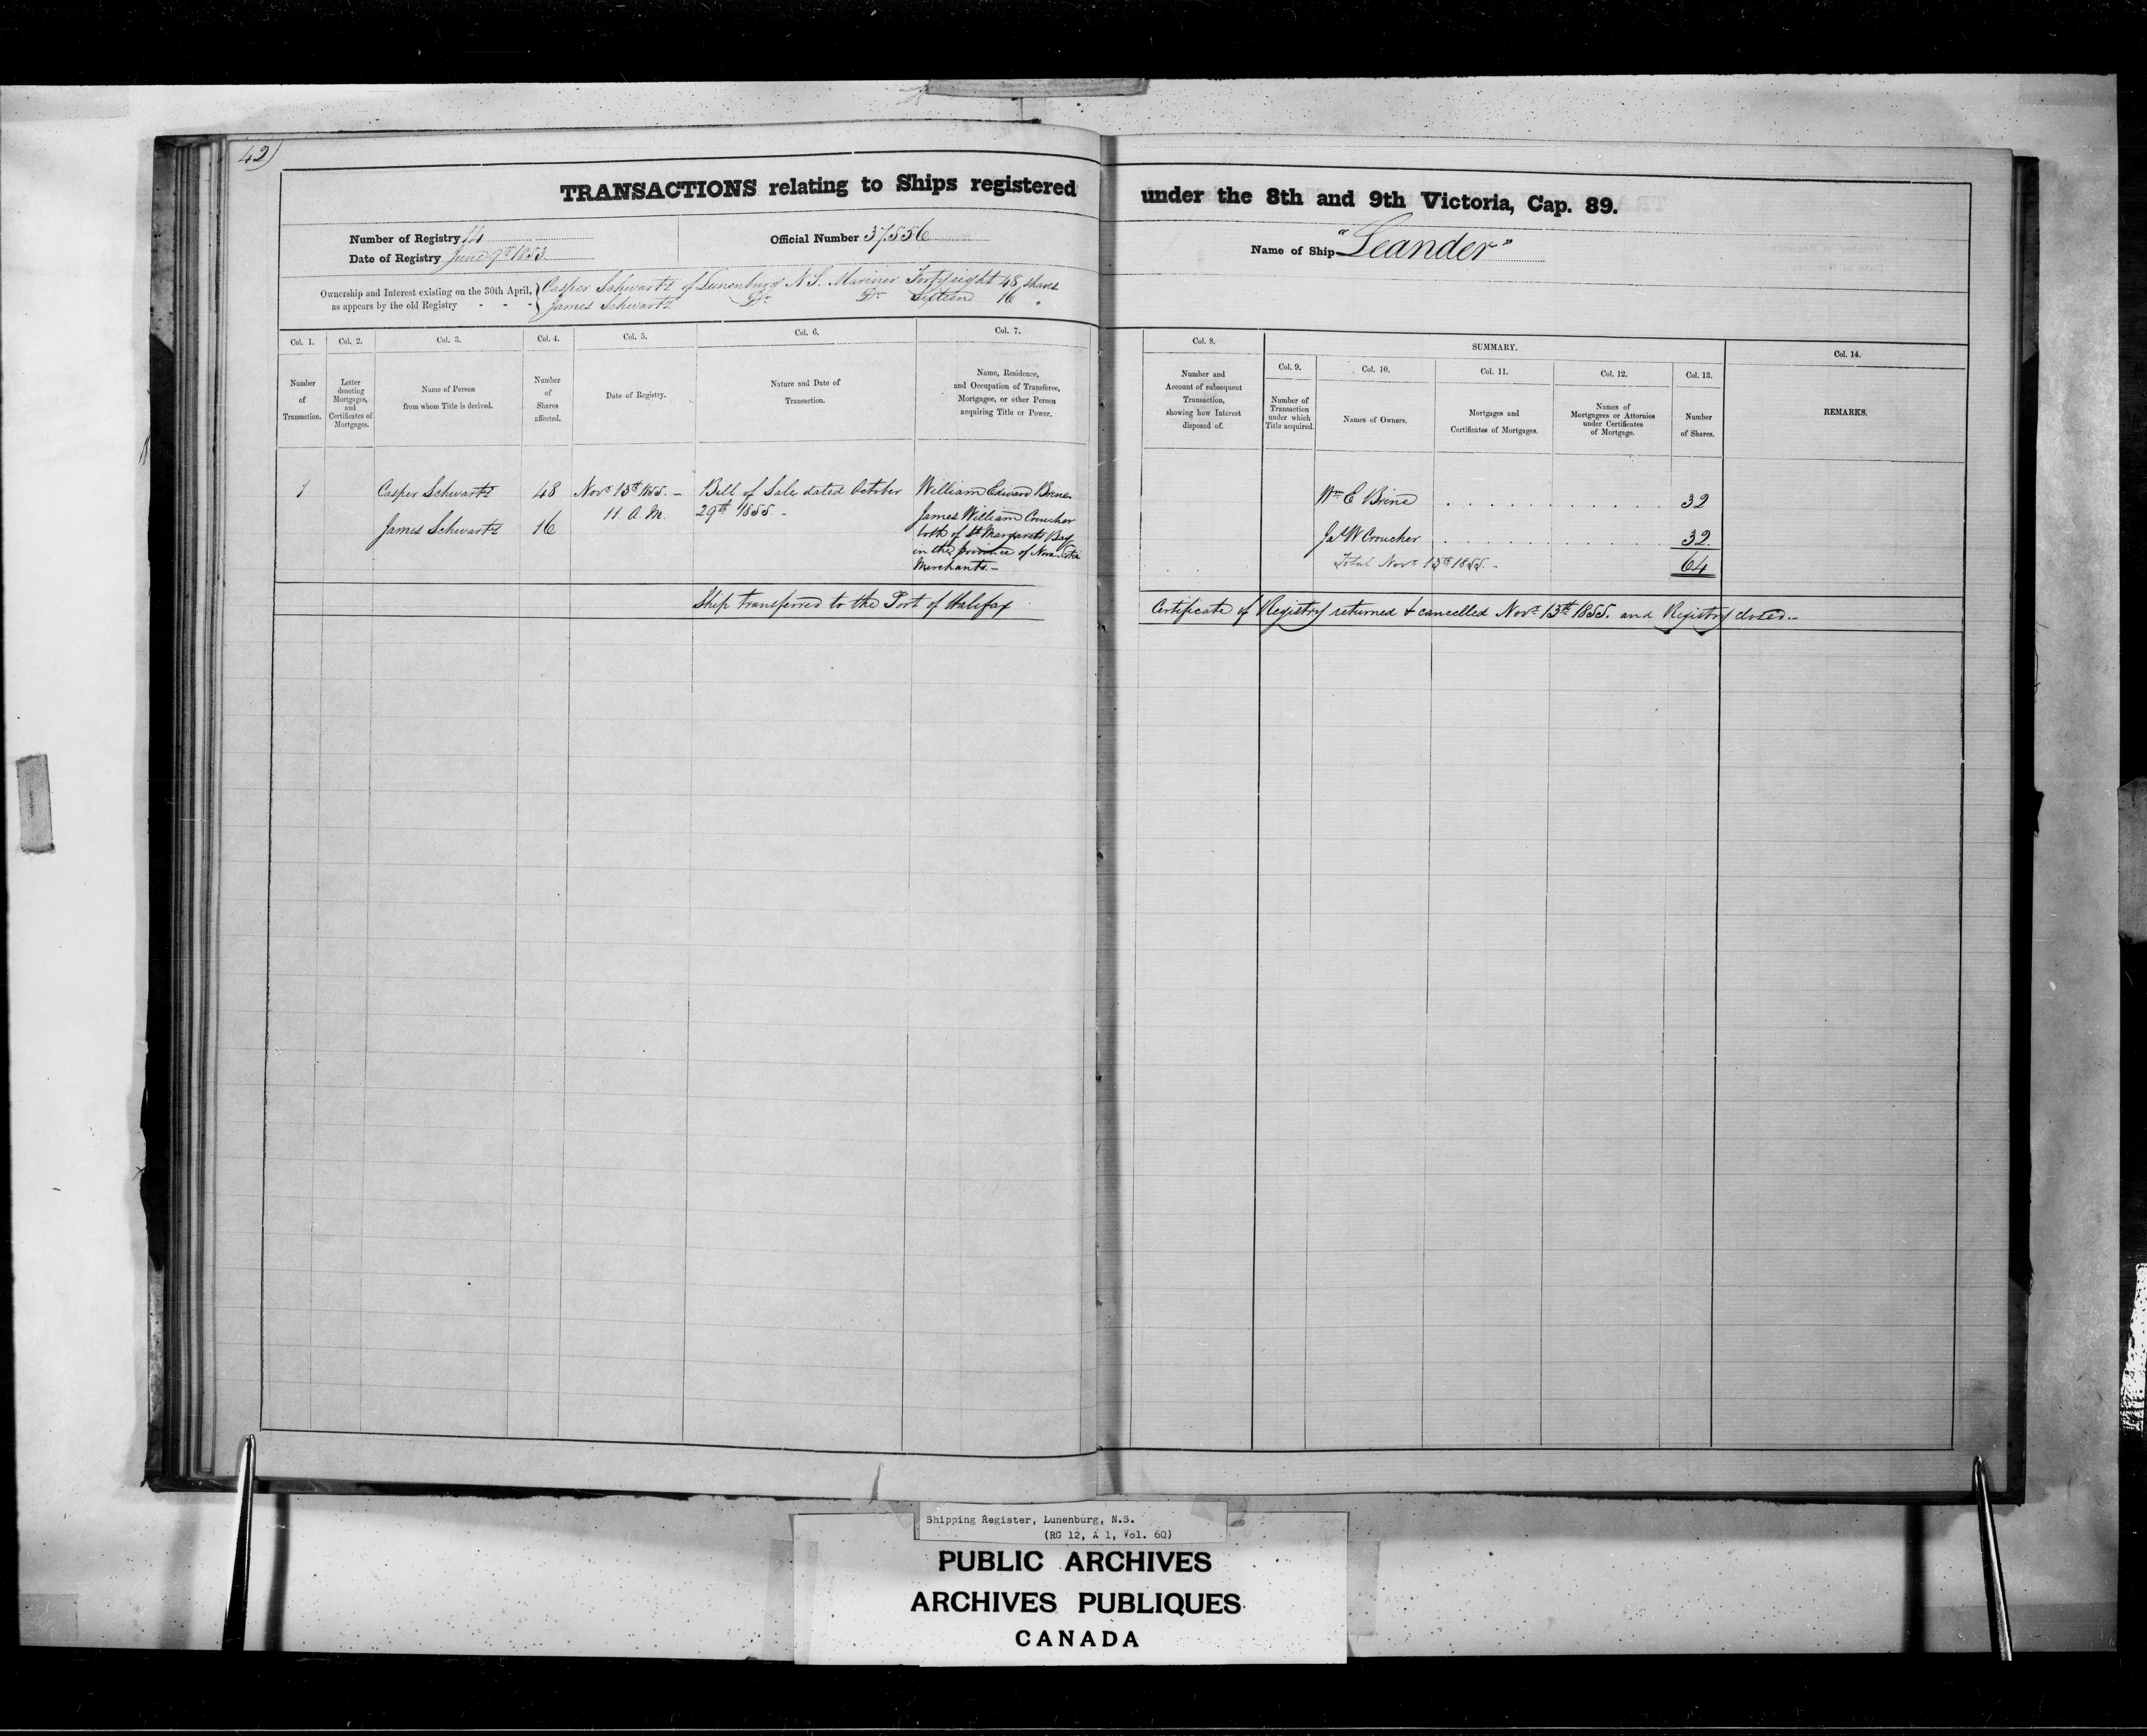 42)
TRANSACTIONS relating to Ships registered under the 8th and 9th Victoria, Cap. 89.
Number of Registry 14
Date of Registry June 9th 1853
Official Number 37,856
Name of Ship "Leander"
Ownership and Interest existing on the 30th April, as appears by the old Registry - - -
Casper Schwartz of Lunenburg N.S. Mariner Forty eight 48 shares
James Schwartz Do Do Sixteen 16 "
Col. 1.
Number of Transaction.
Col. 2.
Letter denoting Mortgages, and Certificates of Mortgages.
Col. 3.
Name of Person from whom Title is derived.
Col. 4.
Number of Shares affected.
Col. 5.
Date of Registry.
Col. 6.
Nature and Date of Transaction.
Col. 7.
Name, Residence, and Occupation of Transferee, Mortgagee, or other Person acquiring Title or Power.
Col. 8.
Number and Account of subsequent Transaction, showing how Interest disposed of.
SUMMARY.
Col. 9.
Number of Transaction under which Title acquired.
Col. 10.
Names of Owners.
Col. 11.
Mortgages and Certificates of Mortgages.
Col. 12.
Names of Mortgagees or Attornies under Certificates of Mortgage.
Col. 13.
Number of Shares.
Col. 14.
REMARKS.
1
Casper Schwartz 48
James Schwartz 16
Novr 13th 1855. -
11 A.M.
Bill of Sale dated October
29th 1855. -
William Edward Brine
James William Croucher
both of St Margarets Bay
in the province of Nova Scotia
Merchants. -
Wm E Brine . . . . . . . . . . . 32
Jas W Croucher . . . . . . . . . . . 32
Total Novr 13th 1855. - 64
Ship transferred to the Port of Halifax
Certificate of Registry returned & cancelled Novr 13th 1855. and Registry closed. -
Shipping Register, Lunenburg, N.S.
(RG 12, A 1, Vol. 60)
PUBLIC ARCHIVES
ARCHIVES PUBLIQUES
CANADA